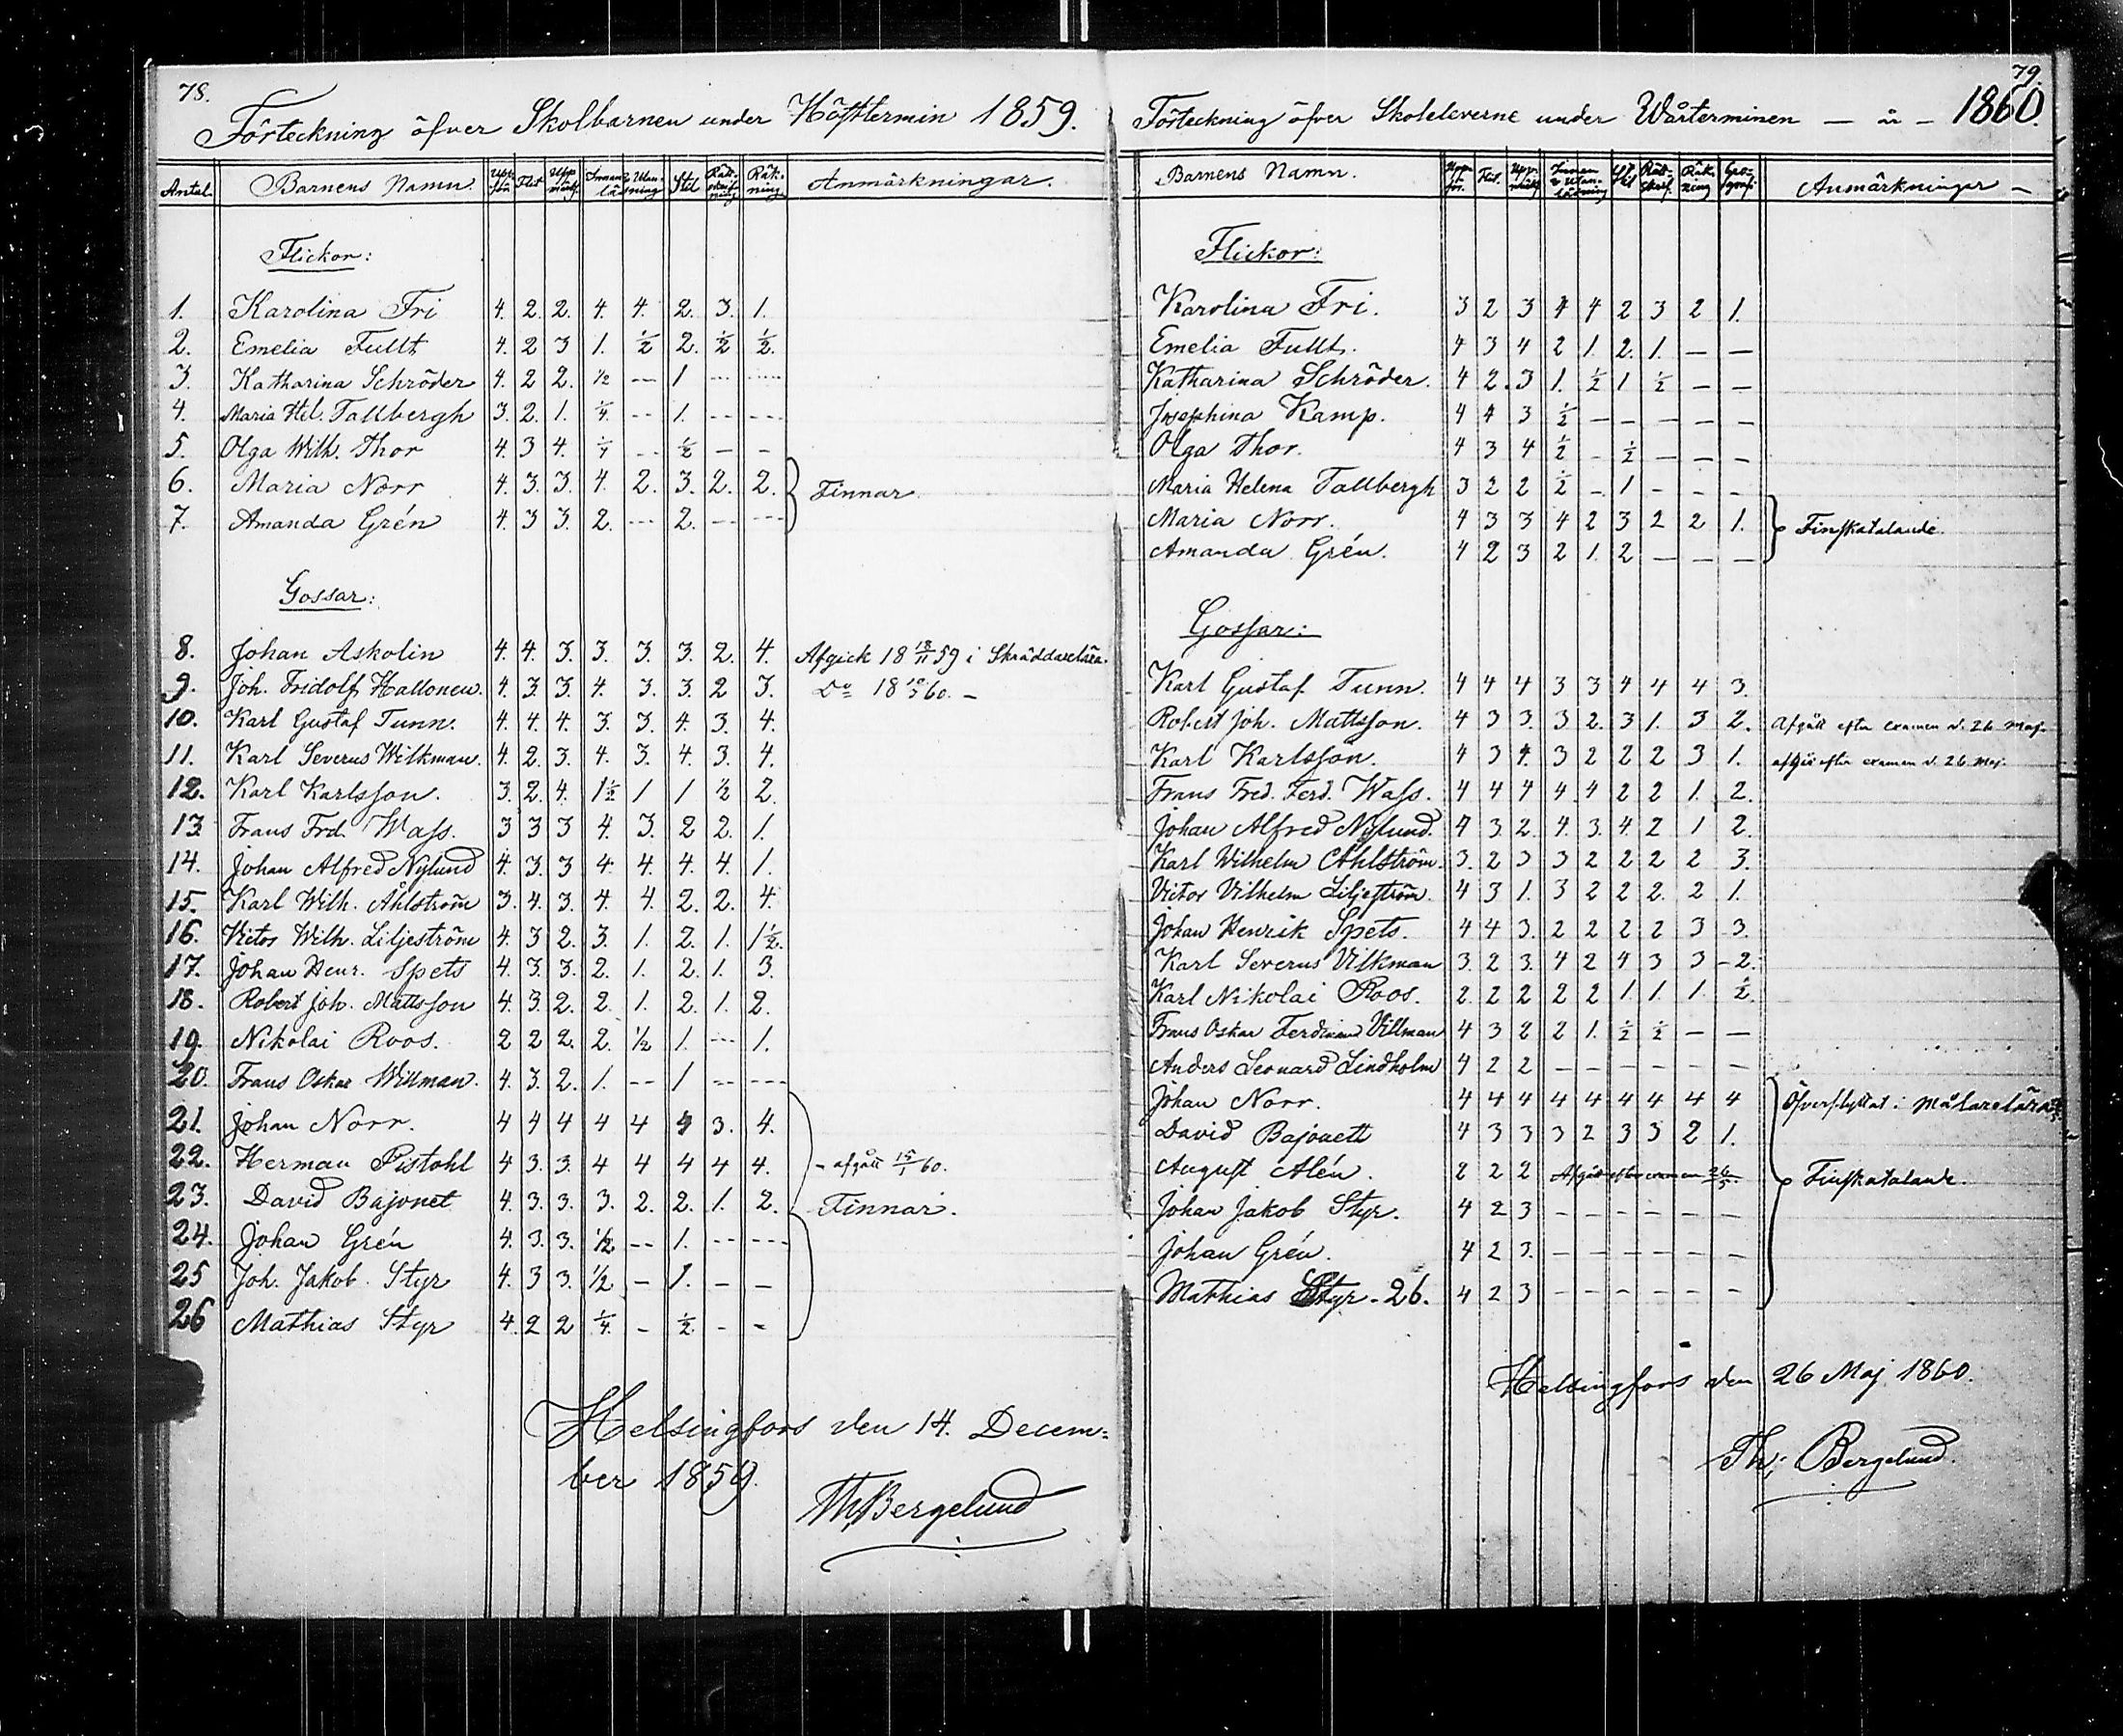 78.
Förteckning öfver Skolbarnen under Hösttermin 1859.
Antal. Barnens Namn. Uppför. Flit Uppmärk. Innan & Utanläsning Stil Rättskrifning Räkning. Anmärkningar.
Flickor:
1. Karolina Fri 4. 2. 2. 4. 4. 2. 3. 1.
2. Emelia Fullt 4. 2 3 1. ½ 2. ½ ½.
3. Katharina Schröder 4. 2 2. ½ --- 1 --- ---
4. Maria Hel. Tallbergh 3. 2. 1. ¼. -- 1. --- ---
5. Olga Wilh. Thor 4. 3 4. ¼ -- ½ — –
6. Maria Norr 4. 3. 3. 4. 2. 3. 2. 2. Finnar
7. Amanda Grén 4. 3 3. 2. --- 2. --- ---
Gossar:
8. Johan Askolin 4. 4. 3. 3. 3. 3. 2. 4. Afgick 18 18/11 59 i Skräddarelära.
9. Joh. Fridolf Hallonen. 4. 3. 3. 4. 3. 3. 2 3. Do 18 60. –
10. Karl Gustaf Tunn. 4. 4. 4. 3. 3. 4. 3. 4.
11. Karl Severus Wilkman. 4. 2. 3. 4. 3. 4. 3. 4.
12. Karl Karlsson. 3. 2. 4. 1½ 1 1 ½ 2.
13. Frans Frd. Wass. 3 3 3 4. 3. 2 2. 1.
14. Johan Alfred Nylund 4. 3. 3 4. 4. 4. 4. 1.
15. Karl Wilh. Åhlström 3. 4. 3. 4. 4. 2. 2. 4.
16. Victor Wilh. Liljeström 4. 3 2. 3. 1. 2. 1. 1½.
17. Johan Henr. Spets 4. 3. 3. 2. 1. 2. 1. 3.
18. Robert Joh. Mattsson 4. 3. 2. 2. 1. 2. 1. 2.
19. Nikolai Roos. 2 2 2. 2. ½ 1. --- 1.
20. Frans Oskar Willman. 4. 3. 2. 1. -- 1 --- ---
21. Johan Norr. 4 4 4 4 4 4 3. 4.
22. Herman Pistohl 4 3. 3. 4 4 4 4 4. - afgått 15/1 60.
23. David Bajonet 4. 3. 3. 3. 2. 2. 1. 2. Finnar.
24. Johan Grén 4. 3. 3. ½ -- 1. --- ---
25 Joh. Jakob Styr 4. 3 3. ½ – 1. – –
26 Mathias Styr 4. 2 2 ¼. – ½ – –
Helsingfors den 14. Decem=
ber 1859.
Th. Bergelund
79.
Förteckning öfver Skoleleverne under Wårterminen — år – 1860.
Barnens Namn. Uppför. Flit. Uppmärk Innan & Utanläsning Stil Rättskrif. Räkning Geografi Anmärkningar –
Flickor:
Karolina Fri. 3 2 3 4 4 2 3 2 1.
Emelia Fullt. 4 3 4 2 1. 2. 1. — —
Katharina Schröder. 4 2. 3 1. ½ 1 ½ – —
Josephina Kamp. 4 4 3 ½ — — — — —
Olga Thor. 4 3 4 ½ – ½ — — —
Maria Helena Tallbergh 3 2 2 ½ – 1 – – –
Maria Norr. 4 3 3 4 2 3 2 2 1. Finskatalande
Amanda Grén. 4 2 3 2 1. 2 — — —
Gossar:
Karl Gustaf Tunn. 4 4 4 3 3 4 4 4 3.
Robert Joh. Mattsson. 4 3 3. 3 2. 3 1. 3 2. Afgått efter examen d. 26 Maj.
Karl Karlsson. 4 3 4. 3 2 2 2 3 1. afgår efter examen d. 26 Maj.
Frans Fred. Ferd. Wass. 4 4 4 4 4 2 2 1. 2.
Johan Alfred Nylund. 4 3. 2. 4. 3. 4. 2 1 2.
Karl Wilhelm Åhlström. 3. 2 3 3 2 2 2 2 3.
Victor Vilhelm Liljeström. 4 3 1. 3 2 2 2. 2 1.
Johan Henrik Spets. 4 4 3. 2 2 2 2 3 3.
Karl Severus Vilkman 3. 2 3. 4 2 4 3 3 2.
Karl Nikolai Roos. 2. 2 2 2 2 1. 1. 1. ½.
Frans Oskar Ferdinand Villman 4 3 2 2 1. ½ ½ — —
Anders Leonard Lindholm 4 2 2 – – – – – –
Johan Norr. 4 4 4 4 4 4 4 4 4 Öfverflyttat i Målarelära
David Bajonett 4 3 3 3 2 3 3 2 1.
August Alén. 2 2 2 Afgått efter examen 26/5. Finskatalande.
Johan Jakob Styr. 4 2 3 – – – – – –
Johan Grén. 4 2 3. – – – – – –
Mathias Styr - 26. 4 2 3 – – – – – –
Helsingfors den 26 Maj 1860.
Th. Bergelund.